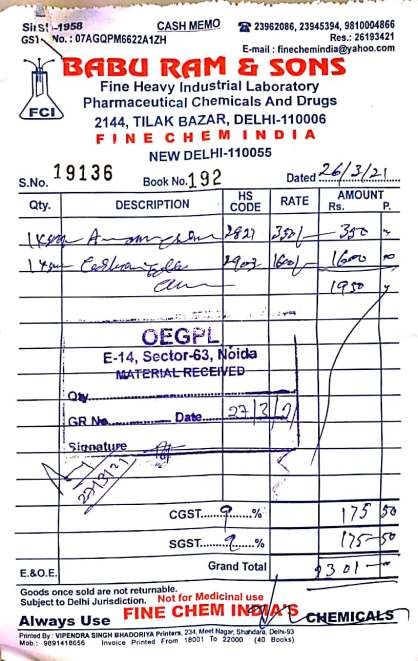 Since-1958 CASH MEMO ☎ 23962086, 23945394, 9810004866
GST No. : 07AGQPM6622A1ZH Res.: 26193421
E-mail : finechemindia@yahoo.com
BABU RAM & SONS
FCI
Fine Heavy Industrial Laboratory
Pharmaceutical Chemicals And Drugs
2144, TILAK BAZAR, DELHI-110006
FINE CHEM INDIA
NEW DELHI-110055
S.No. 19136 Book No. 192 Dated 26/3/21
Qty. DESCRIPTION HS CODE RATE AMOUNT Rs. P.
2827 350/- 350
1600/- 1600 00
1950
OEGPL
E-14, Sector-63, Noida
MATERIAL RECEIVED
Qty.
GR No. Date 27/3/21
Signature
27/3/21
CGST 9 % 175 50
SGST 9 % 175-50
E.&O.E. Grand Total 2301-
Goods once sold are not returnable.
Subject to Delhi Jurisdiction. Not for Medicinal use
Always Use FINE CHEM INDIA'S CHEMICALS
Printed By : VIPENDRA SINGH BHADORIYA Printers, 234, Meet Nagar, Shahdara, Delhi-93
Mob.: 9891418656 Invoice Printed From 18001 To 22000 (40 Books)